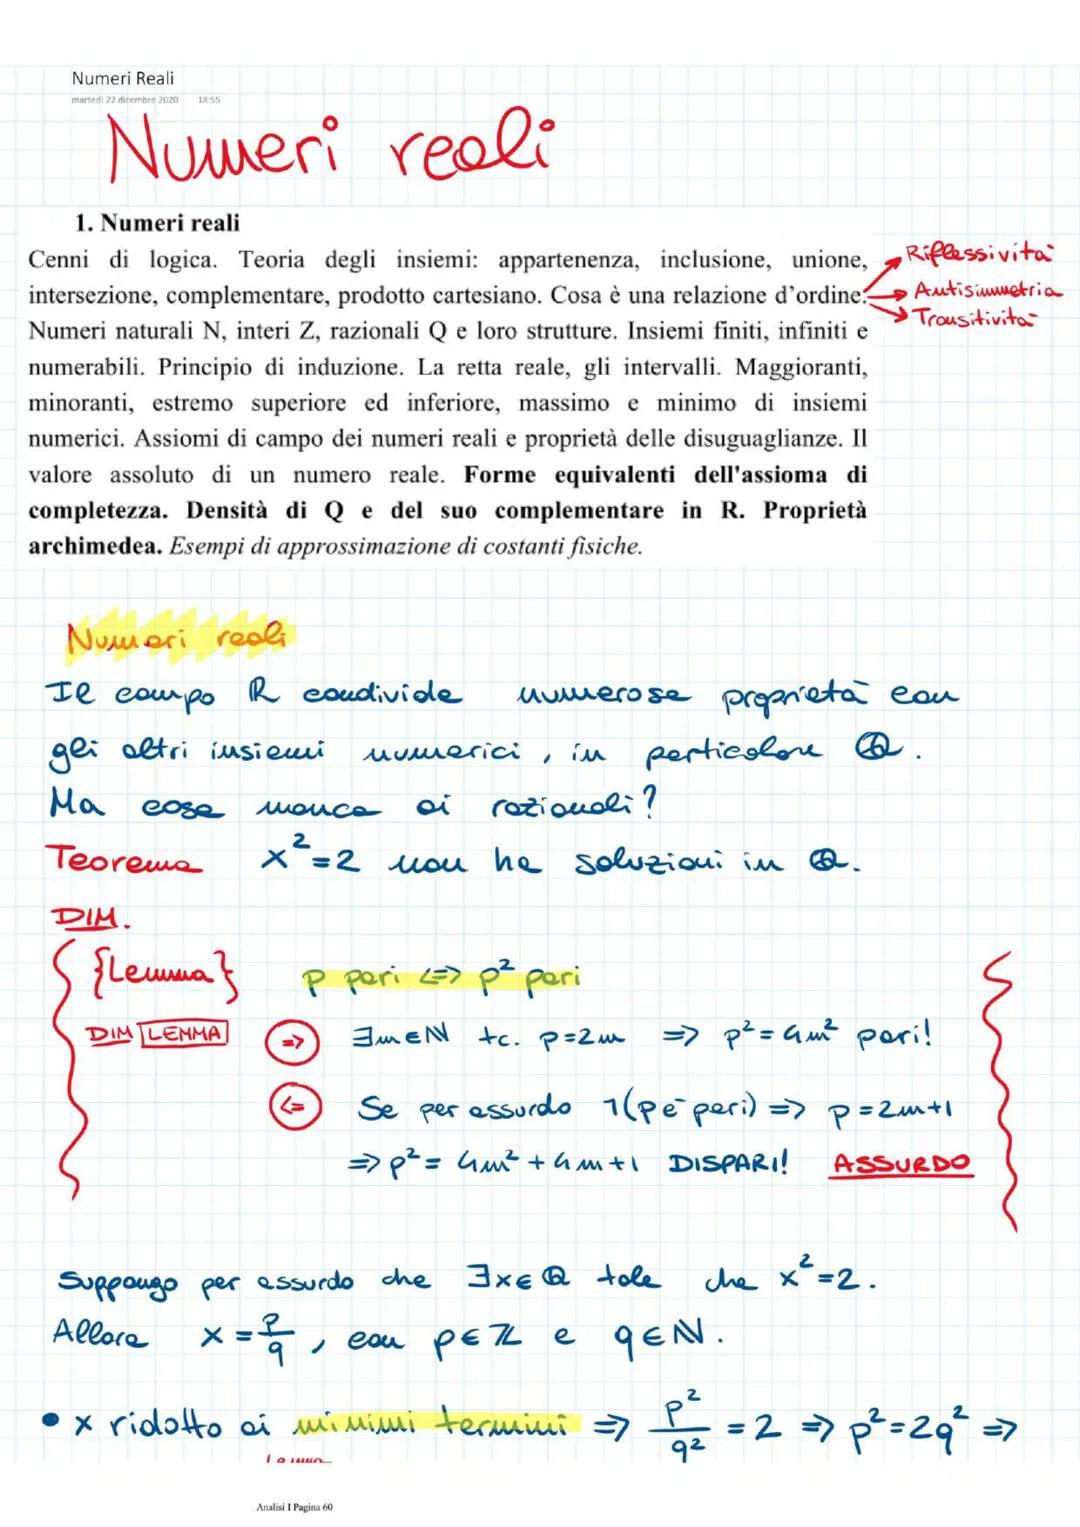 Numeri Reali
martedì 22 dicembre 2020 18:55
Numeri reali
1. Numeri reali
Cenni di logica. Teoria degli insiemi: appartenenza, inclusione, unione,
intersezione, complementare, prodotto cartesiano. Cosa è una relazione d'ordine.
Numeri naturali N, interi Z, razionali Q e loro strutture. Insiemi finiti, infiniti e
numerabili. Principio di induzione. La retta reale, gli intervalli. Maggioranti,
minoranti, estremo superiore ed inferiore, massimo e minimo di insiemi
numerici. Assiomi di campo dei numeri reali e proprietà delle disuguaglianze. Il
valore assoluto di un numero reale. Forme equivalenti dell'assioma di
completezza. Densità di Q e del suo complementare in R. Proprietà
archimedea. Esempi di approssimazione di costanti fisiche.
→ Riflessività
→ Antisimmetria
→ Transitività
Numeri reali
Il campo ℝ condivide numerose proprietà con
gli altri insiemi numerici, in particolare ℚ.
Ma cosa manca ai razionali?
Teorema x²=2 non ha soluzioni in ℚ.
DIM.
{Lemma} p pari <=> p² pari
DIM LEMMA => ∃m∈ℕ tc. p=2m => p²=4m² pari!
<= Se per assurdo ㄱ(p è pari) => p=2m+1
=> p²= 4m²+4m+1 DISPARI! ASSURDO
Suppongo per assurdo che ∃x∈ℚ tale che x²=2.
Allora x=p/q, con p∈ℤ e q∈ℕ.
• x ridotto ai minimi termini => p²/q² = 2 => p²=2q² =>
Analisi I Pagina 60